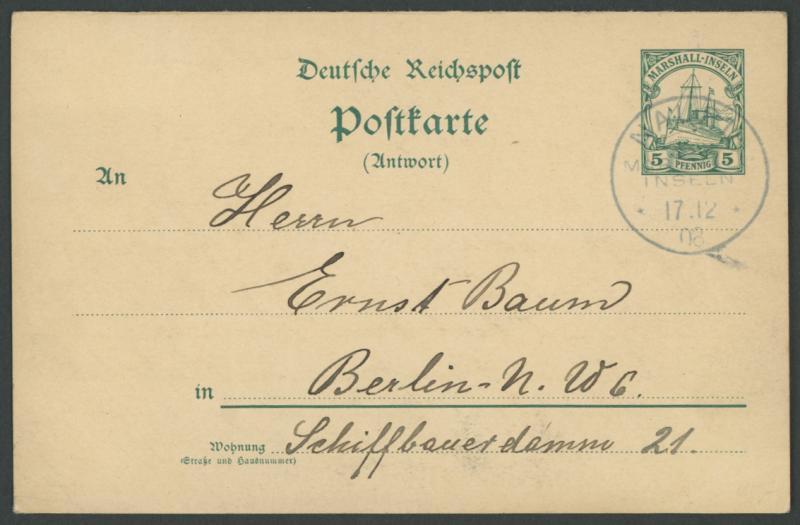 Deutsche Reichspost
Postkarte
(Antwort)
MARSHALL-INSELN
5 PFENNIG 5
INSELN
* 17.12 *
An
Herrn
Ernst Baum
in Berlin-N. W 6.
Wohnung Schiffbauerdamm 21.
(Straße und Hausnummer)